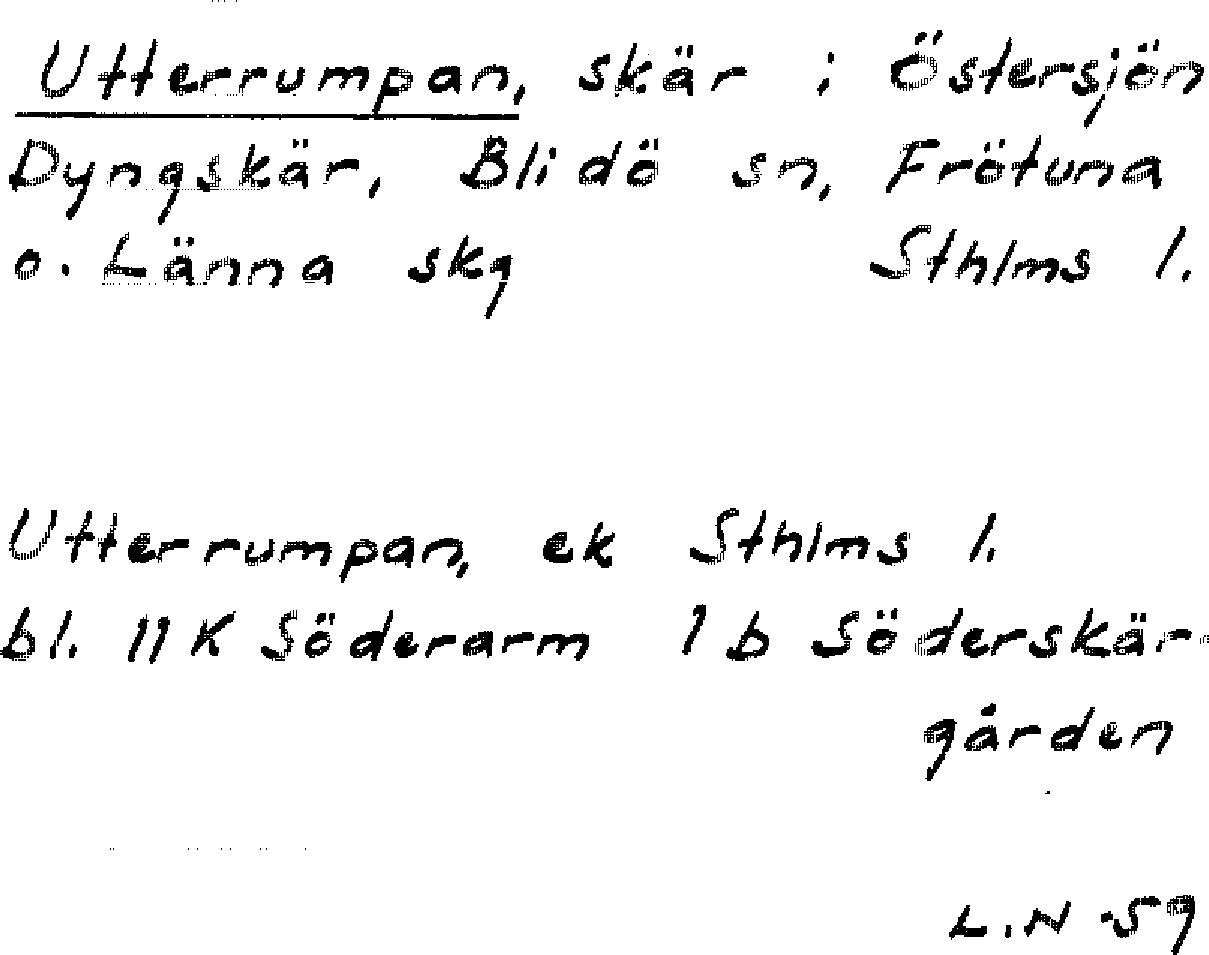 Utterrumpan, skär i Östersjön
Dyngskär, Blidö sn, Frötuna
o. Länna skg Sthlms l.
Utterrumpan, ek Sthlms l.
bl. 11 K Söderarm 1 b Söderskär-
gården
L.N -59